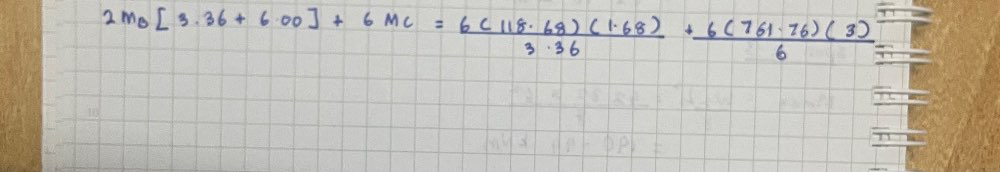 2M_B [3.36 + 6.00] + 6 MC = 6(118.68)(1.68)/3.36 + 6(761.76)(3)/6